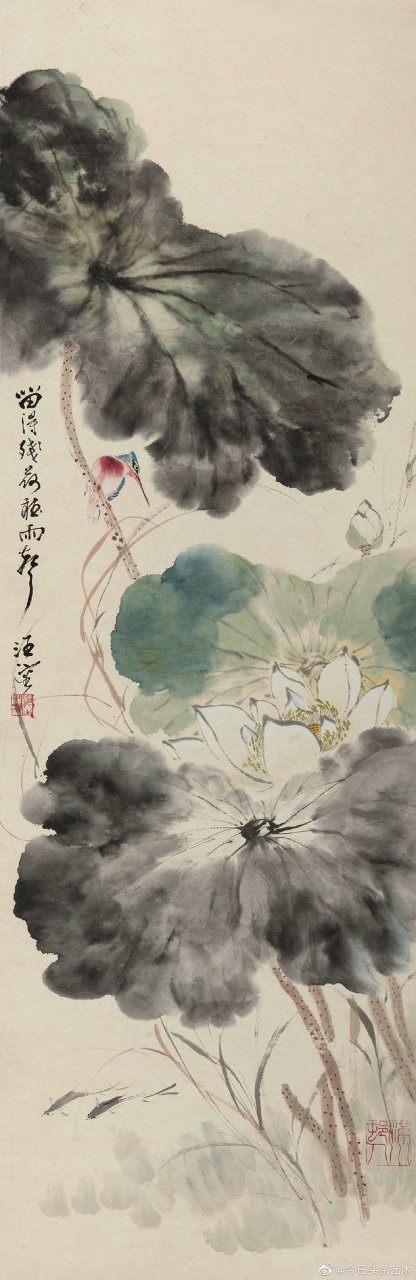 留得残荷聽雨声
汪溶
@今日头条艺术